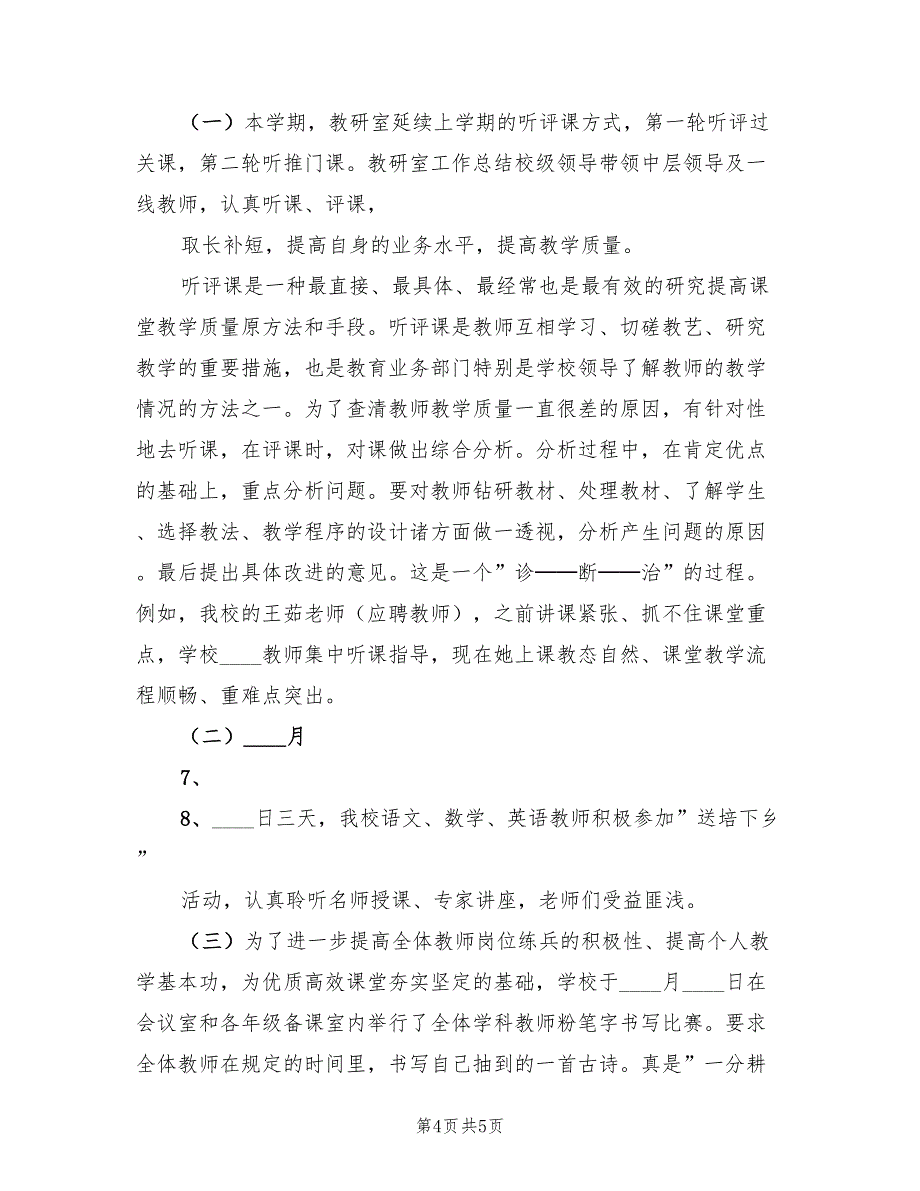 （一）本学期，教研室延续上学期的听评课方式，第一轮听评过
关课，第二轮听推门课。教研室工作总结校级领导带领中层领导及一
线教师，认真听课、评课，
取长补短，提高自身的业务水平，提高教学质量。
听评课是一种最直接、最具体、最经常也是最有效的研究提高课
堂教学质量原方法和手段。听评课是教师互相学习、切磋教艺、研究
教学的重要措施，也是教育业务部门特别是学校领导了解教师的教学
情况的方法之一。为了查清教师教学质量一直很差的原因，有针对性
地去听课，在评课时，对课做出综合分析。分析过程中，在肯定优点
的基础上，重点分析问题。要对教师钻研教材、处理教材、了解学生
、选择教法、教学程序的设计诸方面做一透视，分析产生问题的原因
。最后提出具体改进的意见。这是一个”诊——断——治”的过程。
例如，我校的王茹老师（应聘教师），之前讲课紧张、抓不住课堂重
点，学校____教师集中听课指导，现在她上课教态自然、课堂教学流
程顺畅、重难点突出。
（二）____月
7、
8、____日三天，我校语文、数学、英语教师积极参加”送培下乡
”
活动，认真聆听名师授课、专家讲座，老师们受益匪浅。
（三）为了进一步提高全体教师岗位练兵的积极性、提高个人教
学基本功，为优质高效课堂夯实坚定的基础，学校于____月____日在
会议室和各年级备课室内举行了全体学科教师粉笔字书写比赛。要求
全体教师在规定的时间里，书写自己抽到的一首古诗。真是”一分耕
第4页共5页